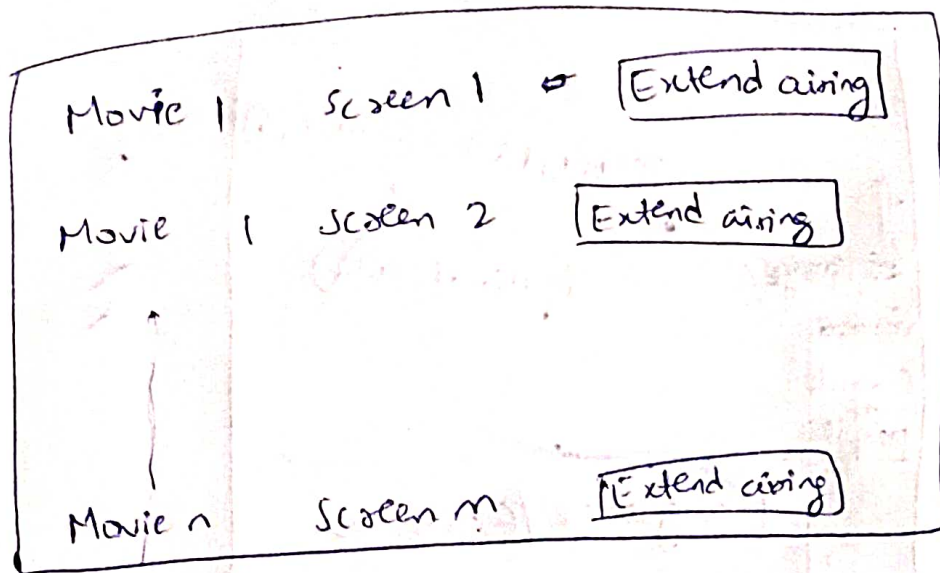 Movie 1 Screen 1 Extend airing
Movie 1 Screen 2 Extend airing
Movie n Screen m Extend airing